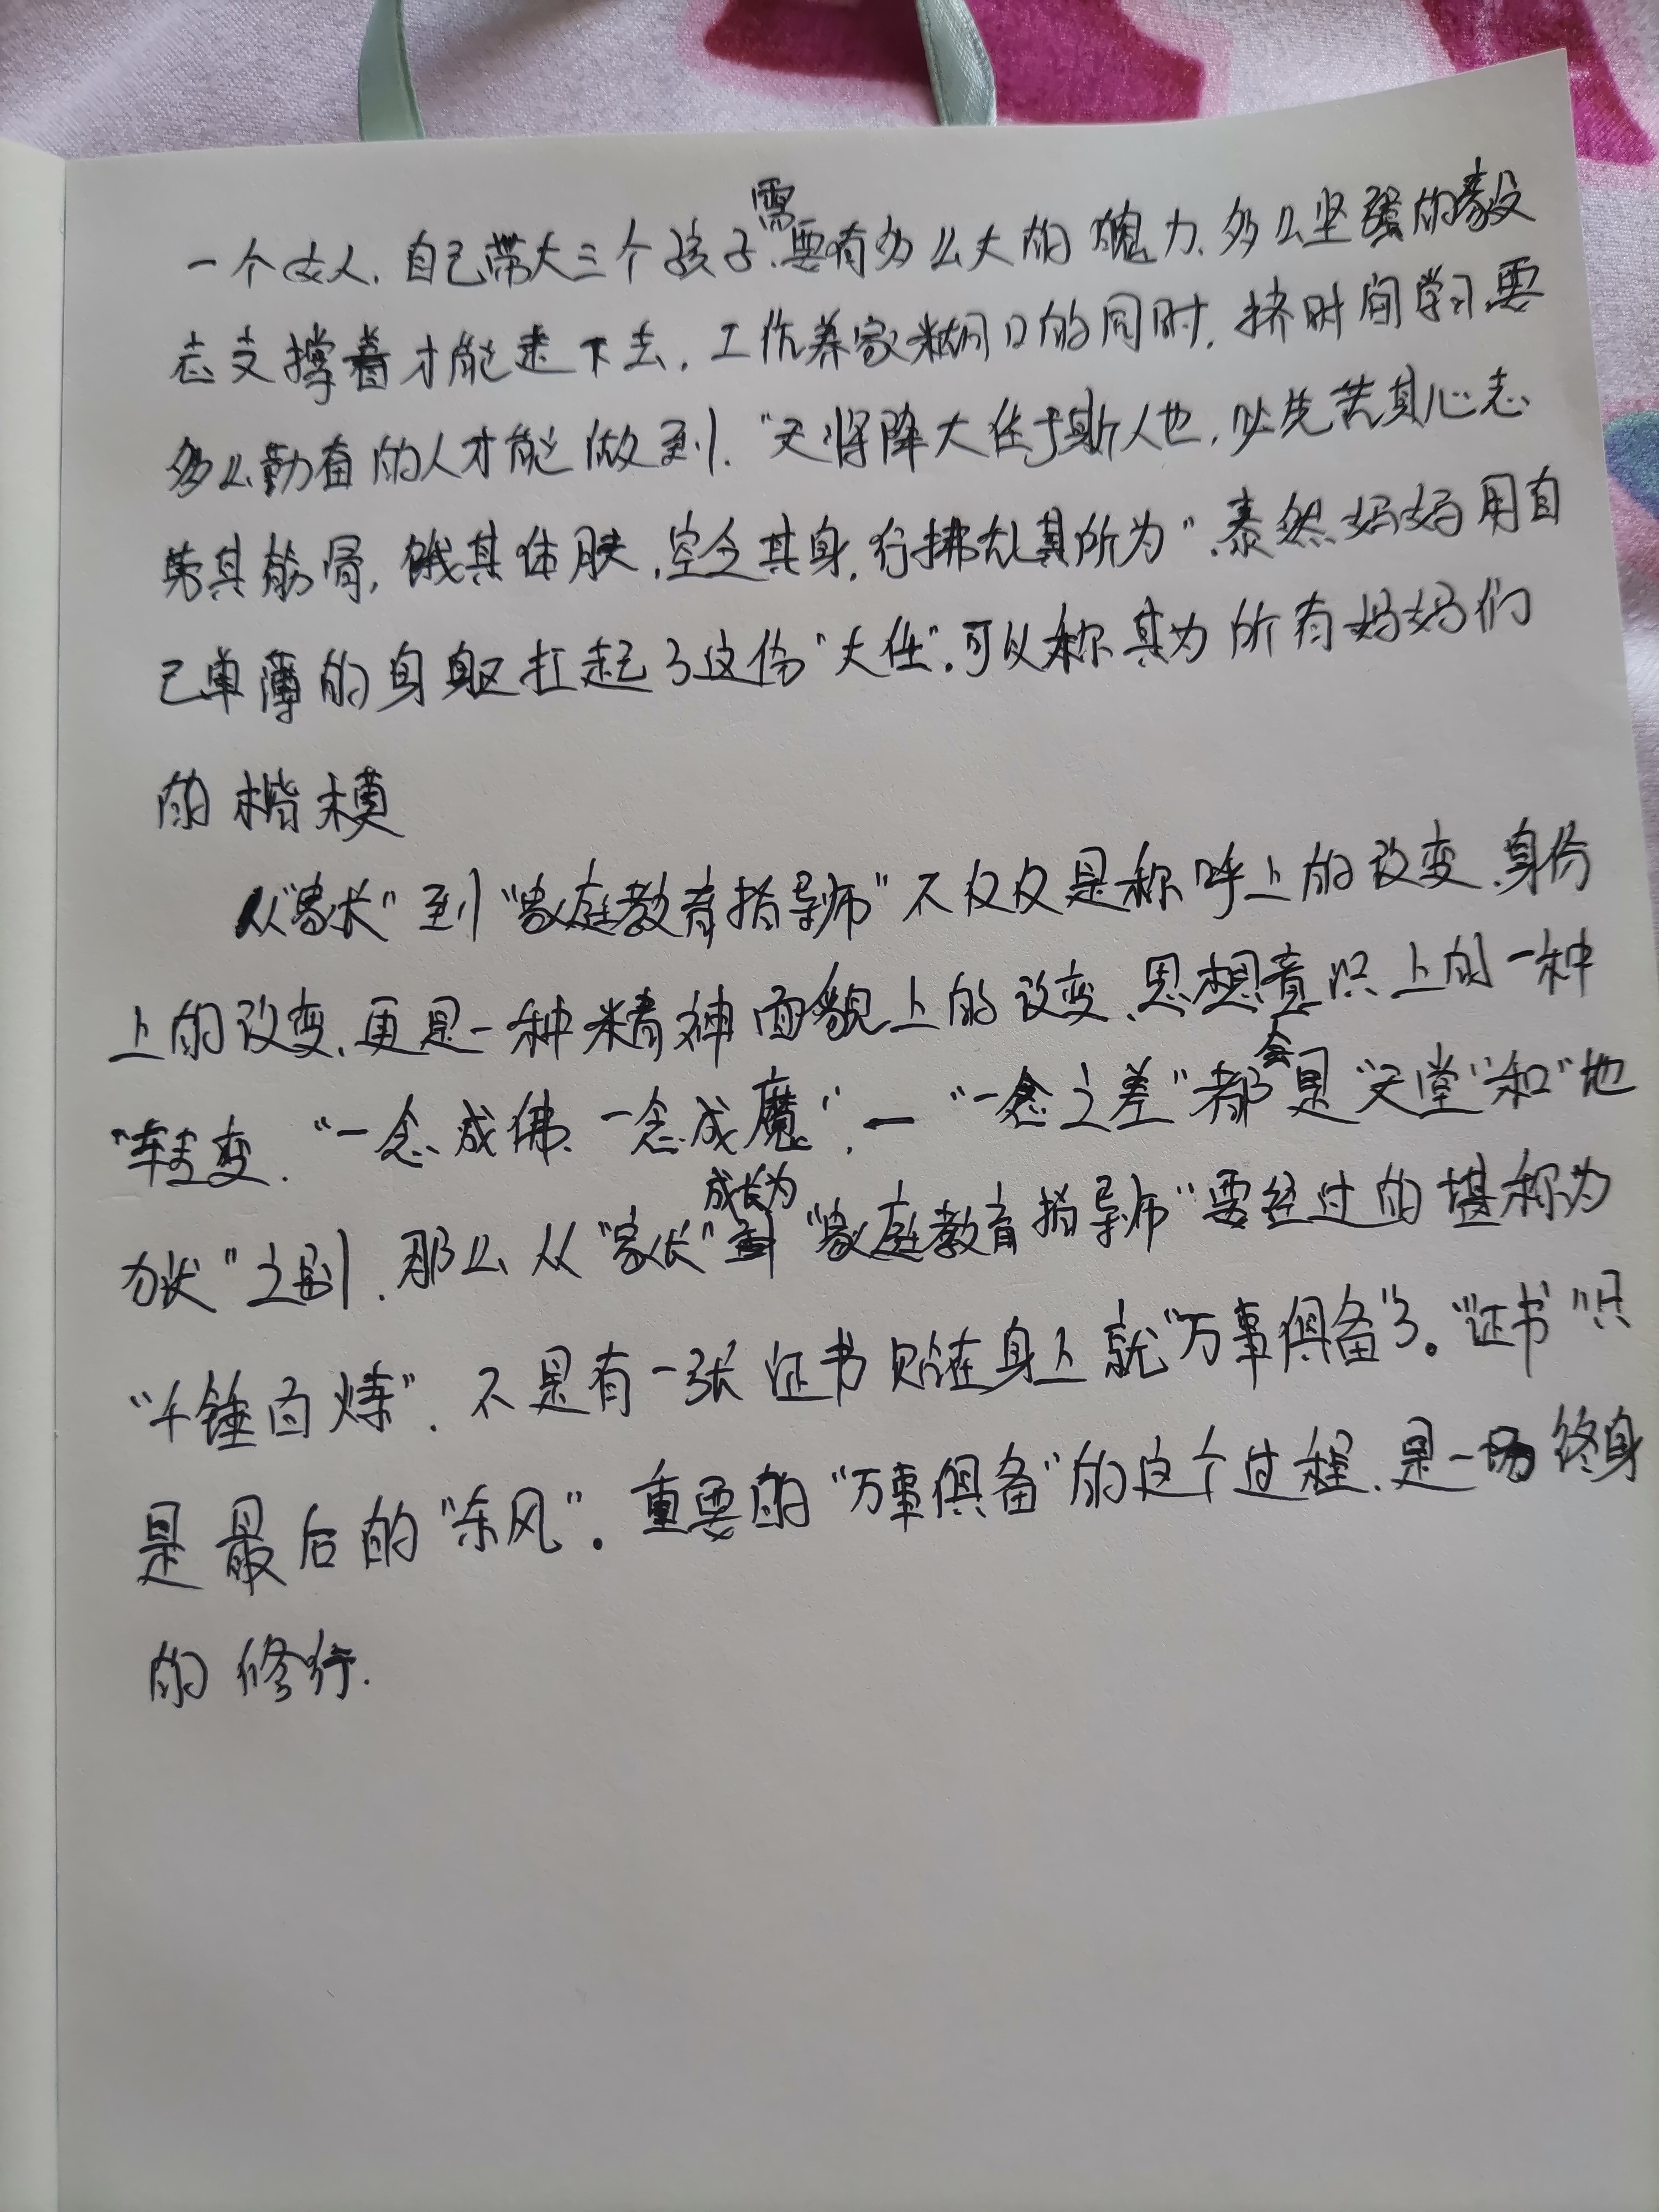 一个女人,自己带大三个孩子,需要有多么大的魄力,多么坚强的毅
志支撑着才能走下去,工作养家糊口的同时,挤时间学习要
多么勤奋的人才能做到."天将降大任于斯人也,必先苦其心志
劳其筋骨,饿其体肤,空乏其身,行拂乱其所为".泰然妈妈用自
己单薄的身躯扛起了这份"大任",可以称其为所有妈妈们
的楷模
从"家长"到"家庭教育指导师"不仅仅是称呼上的改变、身份
上的改变,更是一种精神面貌上的改变、思想意识上的一种
"转变."一念成佛、一念成魔",一"一念之差"都会是"天堂"和"地
狱"之别,那么从"家长"成长为"家庭教育指导师"要经过的堪称为
"千锤百炼",不是有一张证书贴在身上就"万事俱备"了。"证书"只
是最后的"东风"。重要的"万事俱备"的这个过程,是一场终身
的修行.